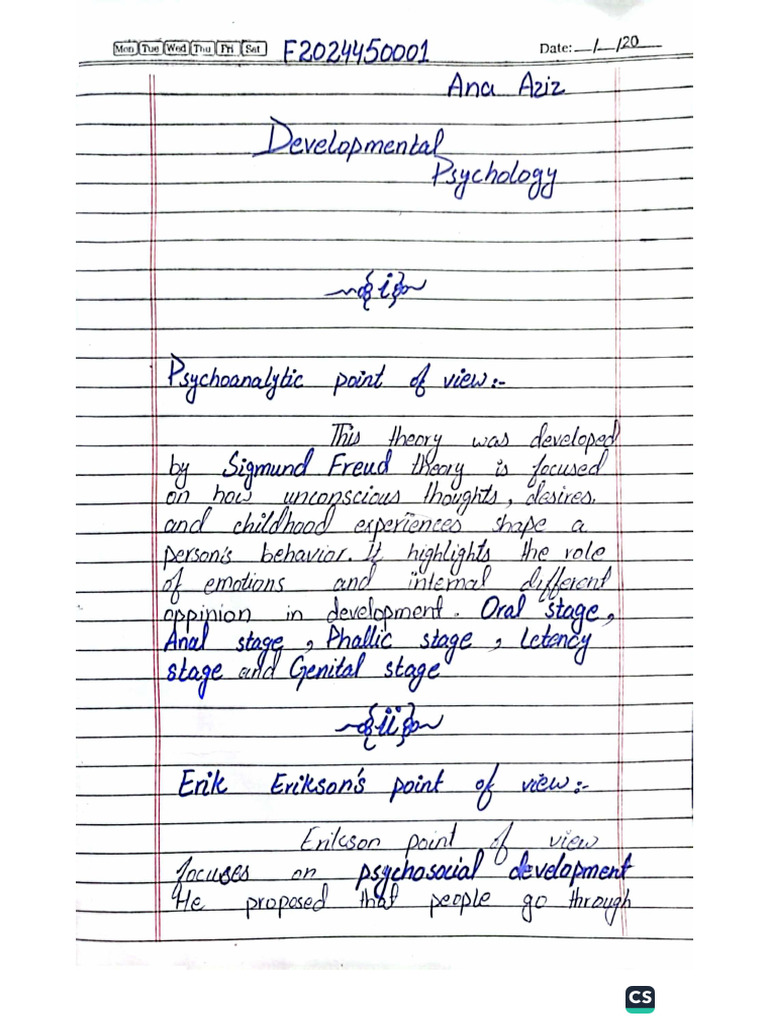 Mon Tue Wed Thu Fri Sat F2024450001 Date: __/__/20__
Ana Aziz
Developmental
Psychology
i
Psychoanalytic point of view:-
This theory was developed
by Sigmund Freud theory is focused
on how unconscious thoughts, desires,
and childhood experiences shape a
person's behavior. It highlights the role
of emotions and internal different
oppinion in development. Oral stage,
Anal stage, Phallic stage, Letency
stage and Genital stage
ii
Erik Erikson's point of view:-
Erikson point of view
focuses on psychosocial development
He proposed that people go through
CS